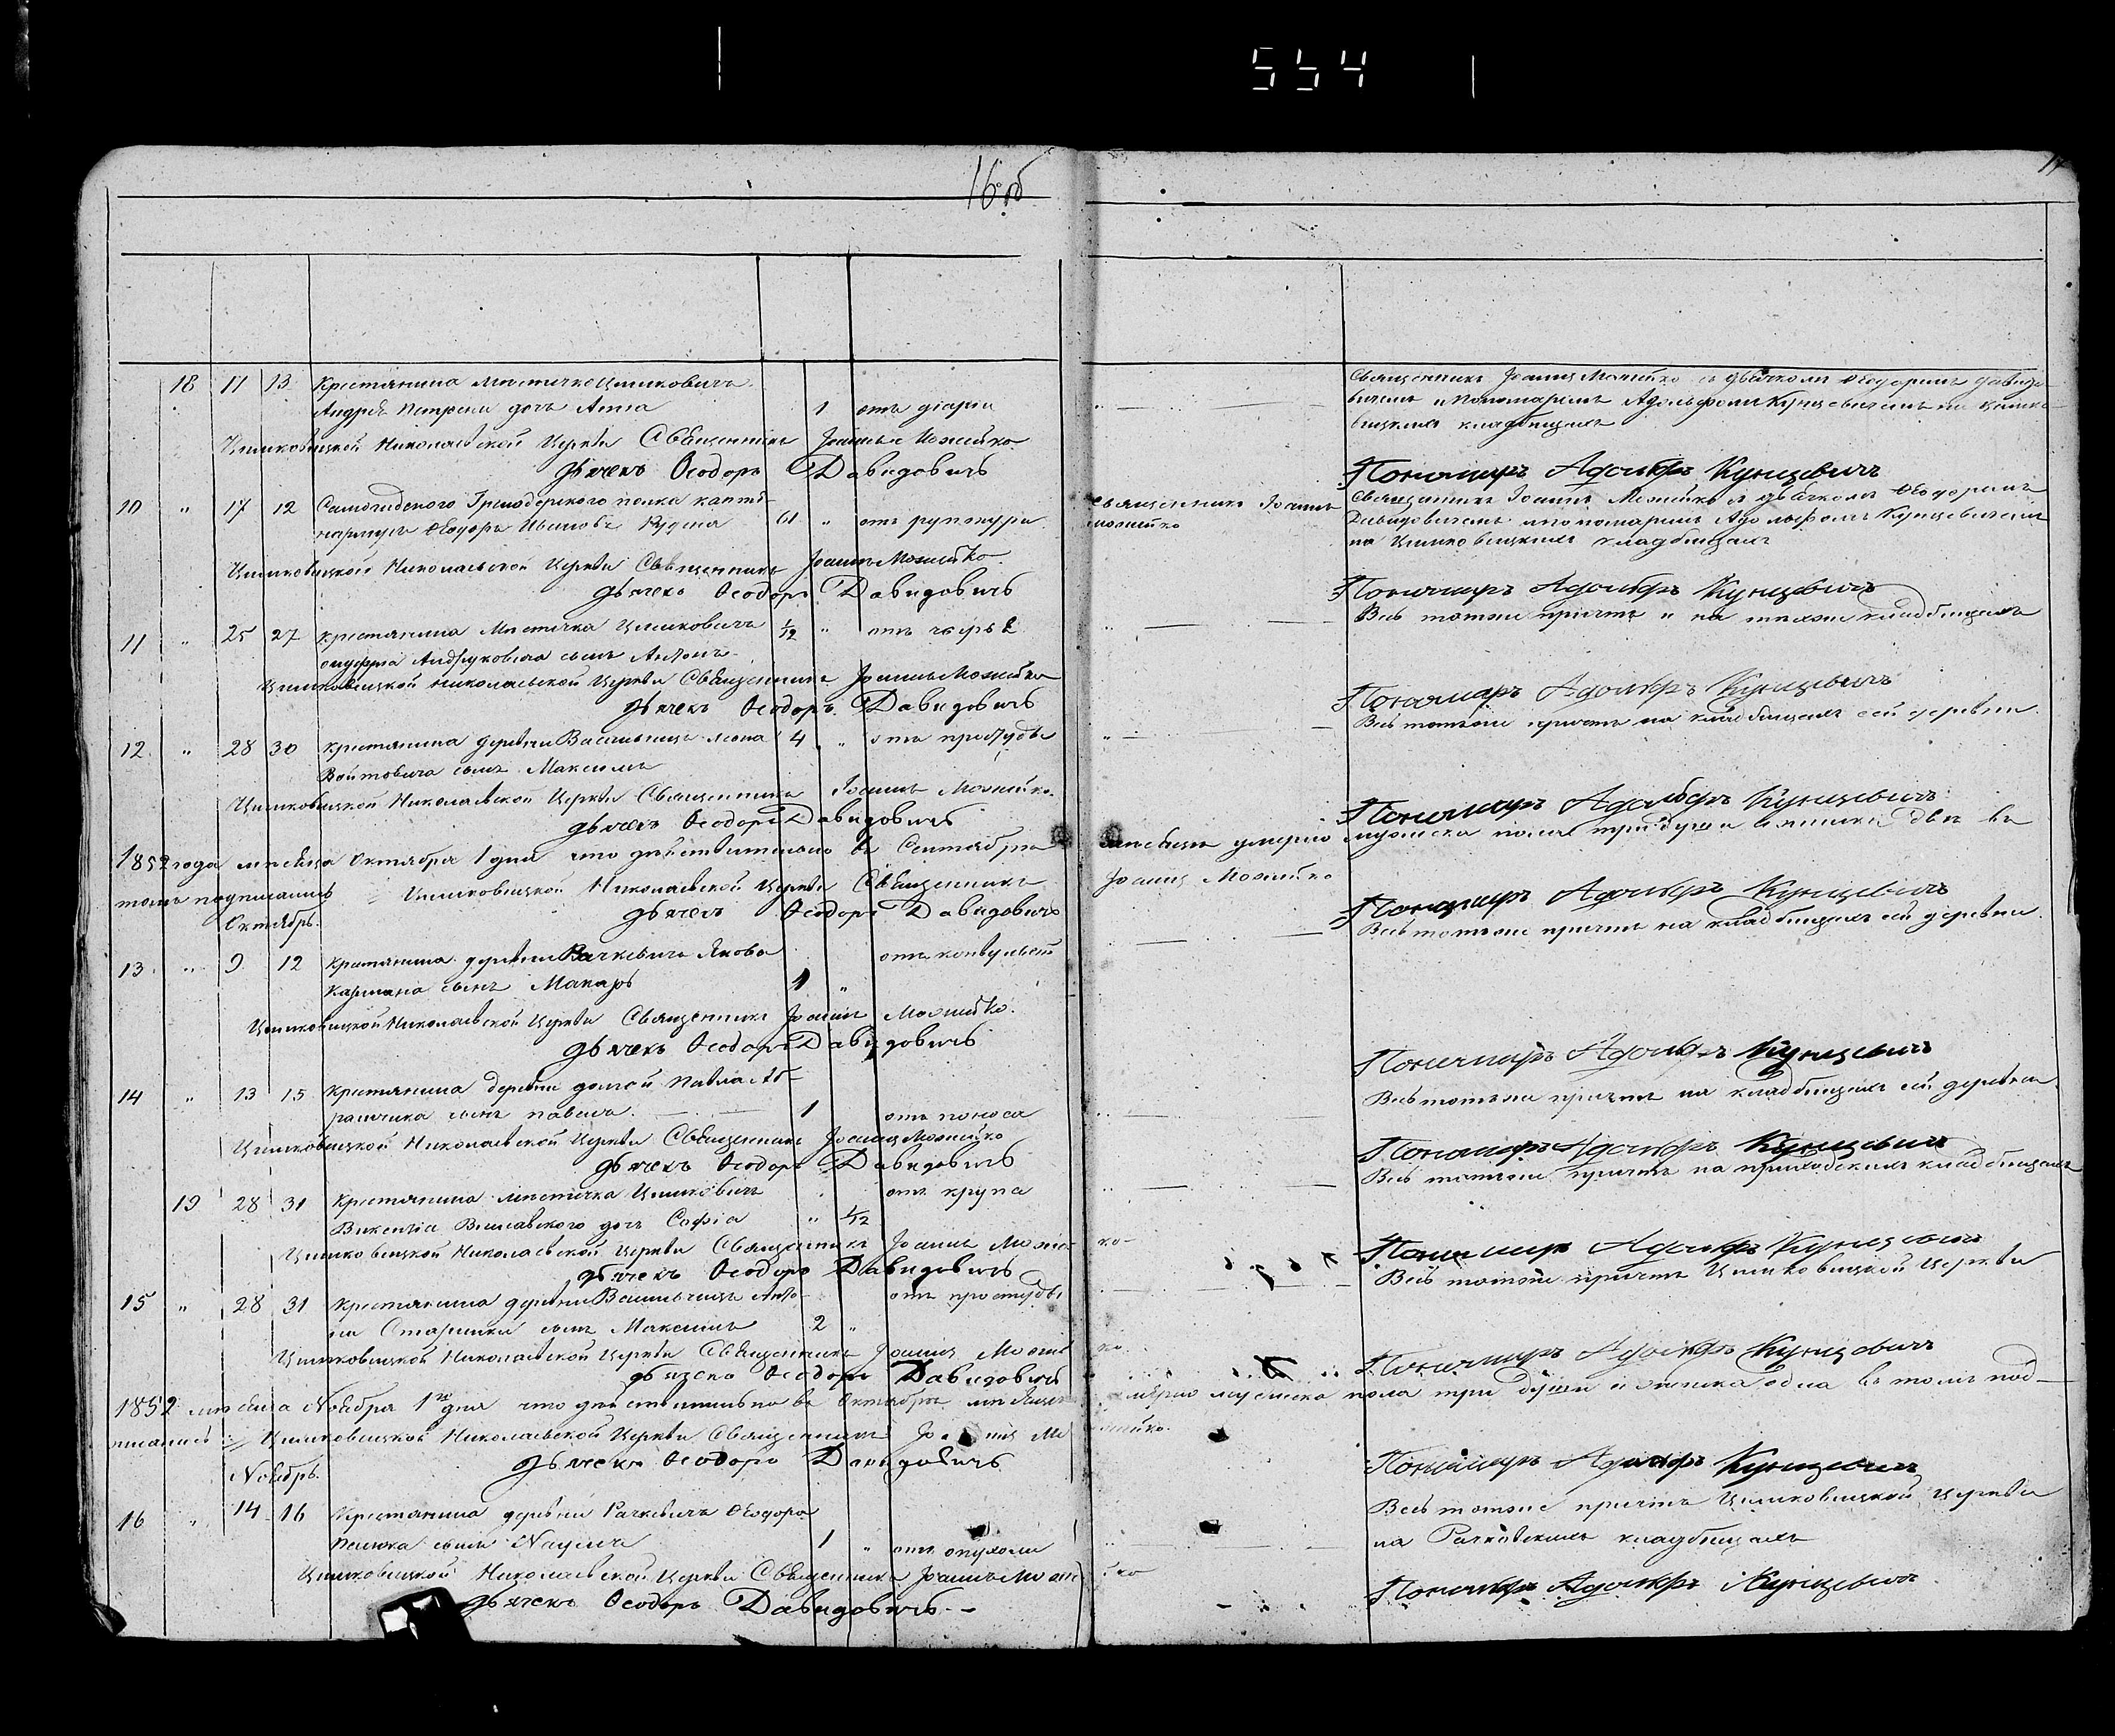 554
16 об
17
18 11 13 Крестянина мѣстечка Цимковичъ
Андрея Петрени дочь Анна 1 отъ діаріи
Священникъ Іоаннъ Можейко съ дьячкомъ Ѳеодоромъ Давидо-
вичемъ и Пономаремъ Адольфомъ Кунцевичемъ на Цимко-
вицкихъ кладбищахъ
Цимковицкой Николаевской Церкви Священникъ Іоаннъ Можейко
Дьячекъ Ѳеодоръ Давидовичъ
Пономарь Адольфъ Кунцевичъ
10 „ 17 12 Гренадерскаго полка капте-
нармусъ Ѳеодоръ Ивановъ 61 „ отъ
Священникъ Іоаннъ
Можейко
Священникъ Іоаннъ Можейко съ дьячкомъ Ѳеодоромъ
Давидовичемъ и пономаремъ Адольфомъ Кунцевичемъ
на Цимковицкихъ кладбищахъ
Цимковицкой Николаевской Церкви Священникъ Іоаннъ Можейко
Дьячекъ Ѳеодоръ Давидовичъ
Пономарь Адольфъ Кунцевичъ
11 „ 25 27 Крестянина Мѣстечка Цимковичъ 1/12 „ отъ
Онуфрія Андруковича сынъ Антонъ
Весь тотже причтъ и на тѣхже кладбищахъ
Цимковицкой Николаевской Церкви Священникъ Іоаннъ Можейко
Дьячекъ Ѳеодоръ Давидовичъ
Пономарь Адольфъ Кунцевичъ
12. „ 28 30 Крестянина деревни Васильчицъ 4 „ отъ простуды
Войтовича сынъ Максимъ
Весь тотже причтъ на кладбищахъ сей деревни
Цимковицкой Николаевской Церкви Священникъ Іоаннъ Можейко
Дьячекъ Ѳеодоръ Давидовичъ
Пономарь Адольфъ Кунцевичъ
1852 года мѣсяца Октября 1 дня что дѣйствительно въ Сентябрѣ мѣсяцѣ умерло мужеска пола три души и женска двѣ въ
томъ подписались Цимковицкой Николаевской Церкви Священникъ Іоаннъ Можейко
Дьячекъ Ѳеодоръ Давидовичъ
Пономарь Адольфъ Кунцевичъ
Октябрь.
13. „ 9 12 Крестянина деревни Рачкевичъ Якова отъ конвульсій
Кармана сынъ Макаръ 1 „
Весь тотже причтъ на кладбищахъ сей деревни
Цимковицкой Николаевской Церкви Священникъ Іоаннъ Можейко.
Дьячекъ Ѳеодоръ Давидовичъ
Пономарь Адольфъ Кунцевичъ
14 „ 13 15 Крестянина деревни долгой Павла Аб-
рамчика сынъ Павелъ 1 отъ поноса
Весь тотже причтъ на кладбищахъ сей деревни
Цимковицкой Николаевской Церкви Священникъ Іоаннъ Можейко
Дьячекъ Ѳеодоръ Давидовичъ
Пономарь Адольфъ Кунцевичъ
19 28 31 Крестянина мѣстечка Цимковичъ отъ крупа
Викентія дочь Софія „ 1/12
Весь тотже причтъ на приходскихъ кладбищахъ
Цимковицкой Николаевской Церкви Священникъ Іоаннъ Можей-
ко
Дьячекъ Ѳеодоръ Давидовичъ
Пономарь Адольфъ Кунцевичъ
15 „ 28 31 Крестянина деревни Васильчицъ Анто- отъ простуды
на Старинки сынъ Максимъ 2 „
Весь тотже причтъ Цимковицкой Церкви
Цимковицкой Николаевской Церкви Священникъ Іоаннъ Можей
ко
Дьячекъ Ѳеодоръ Давидовичъ
Пономарь Адольфъ Кунцевичъ
1852 мѣсяца Ноября 1го дня что дѣйствительно въ Октябрѣ мѣсяцѣ умерло мужеска пола три души и женска одна въ томъ под-
писались Цимковицкой Николаевской Церкви Священникъ Іоаннъ Можейко.
Дьячекъ Ѳеодоръ Давидовичъ
Пономарь Адольфъ Кунцевичъ
Ноябрь.
16 „ 14 16 Крестянина деревни Рачкевичъ Ѳеодора
сынъ Наумъ 1 „ отъ опухоли
Весь тотже причтъ Цимковицкой Церкви
на Рачковскихъ кладбищахъ
Цимковицкой Николаевской Церкви Священникъ Іоаннъ Можейко
Дьячекъ Ѳеодоръ Давидовичъ
Пономарь Адольфъ Кунцевичъ